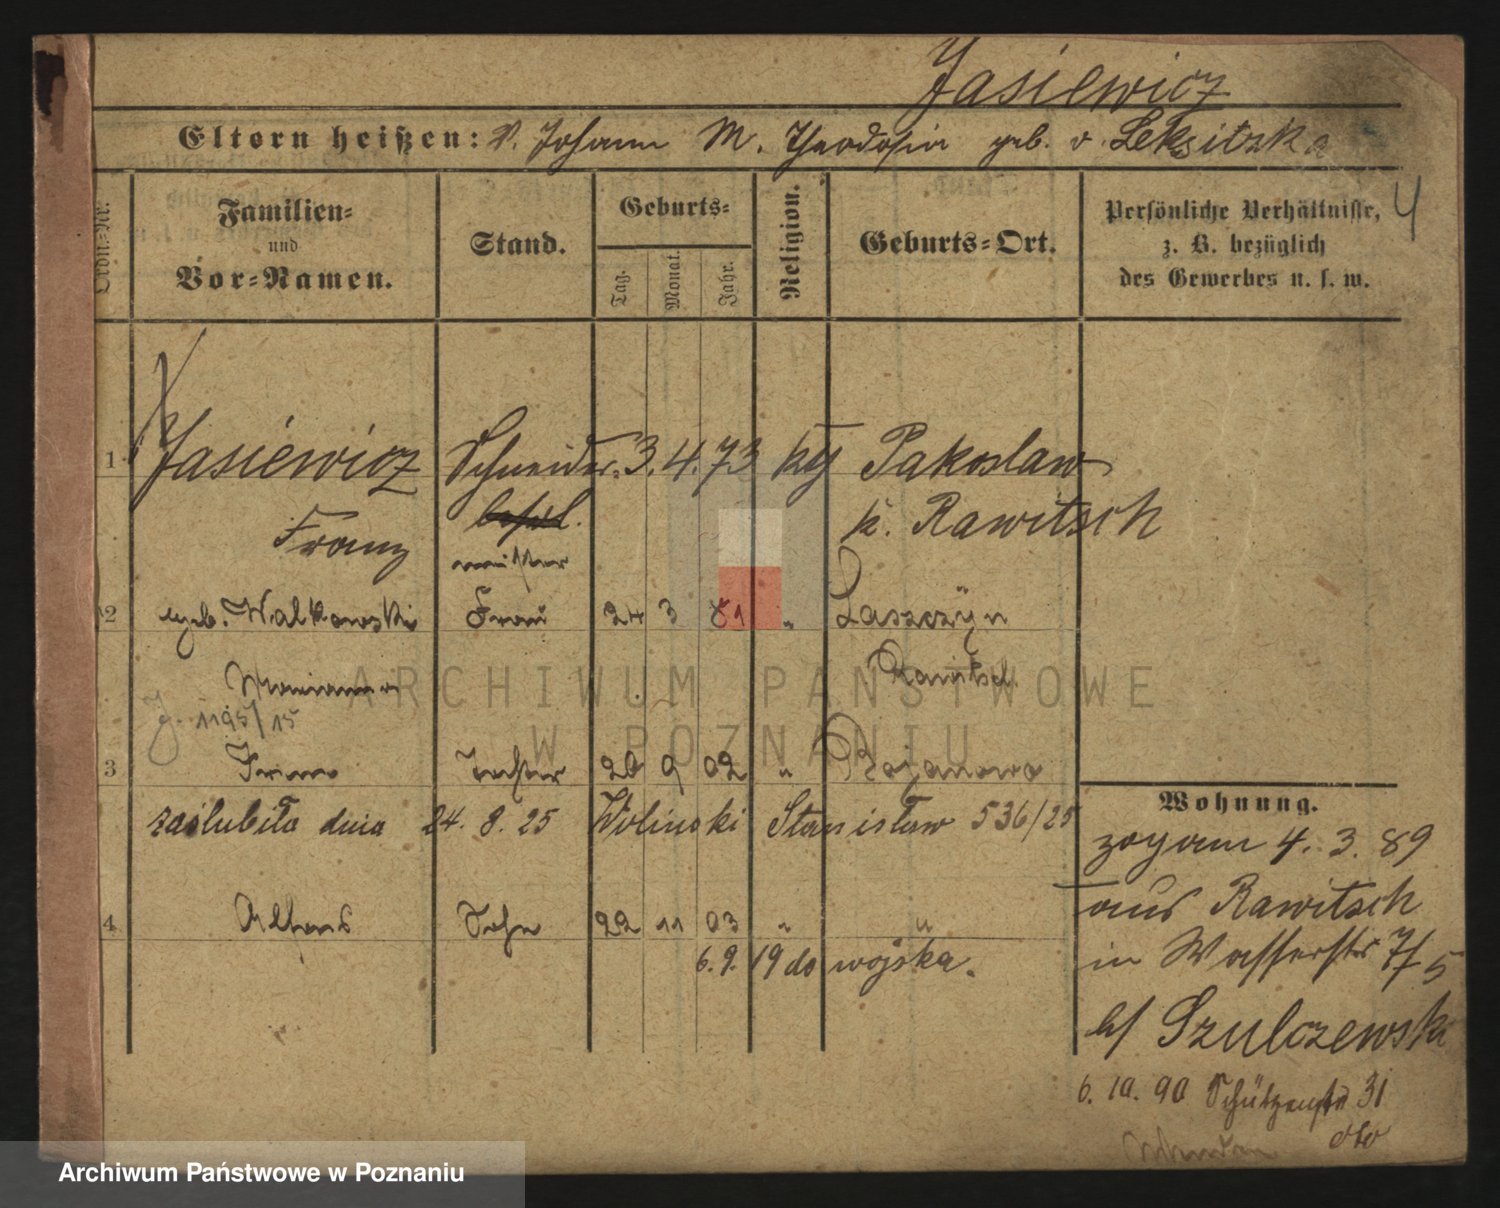 Jasiewicz
Eltern heißen: V. Johann M. Theodosia geb. v. Leksitzka
4
Ordn.-Nr.
Familien- und Vor-Namen.
Stand.
Geburts-
Tag. Monat. Jahr.
Religion.
Geburts-Ort.
Persönliche Verhältnisse, z. B. bezüglich des Gewerbes u. s. w.
1 Jasiewicz Schneider 3. 4. 73 kg Pakoslaw
Franz k. Rawitsch
meister
2 geb. Walkowski Frau 24 3 81 " Laszczyn
Marianna Rawitsch
J. 1195/15
3 Irma Tochter 20 9 02 " Bojanowo
zaślubiła dnia 24. 8. 25 Wolinski Stanisław 536/25
4 Alfons Sohn 22 11 03 " "
6. 9. 19 do wojska.
Wohnung.
zog am 4. 3. 89
aus Rawitsch
in Wasserstr 7/5
b/ Szulczewski
6. 10. 90 Schützenstr 31
oto
ARCHIWUM PAŃSTWOWE
W POZNANIU
Archiwum Państwowe w Poznaniu